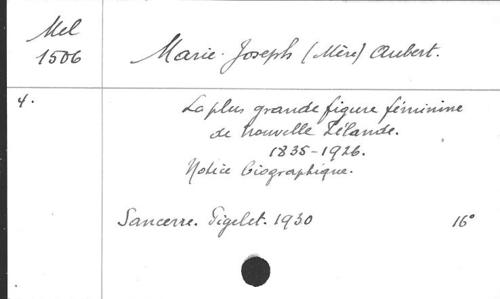 Mel
1506
Marie-Joseph (Mère) Aubert.
4.
La plus grande figure féminine
de Nouvelle Zélande.
1835-1926.
Notice biographique.
Sancerre. Pigelet. 1930 16°